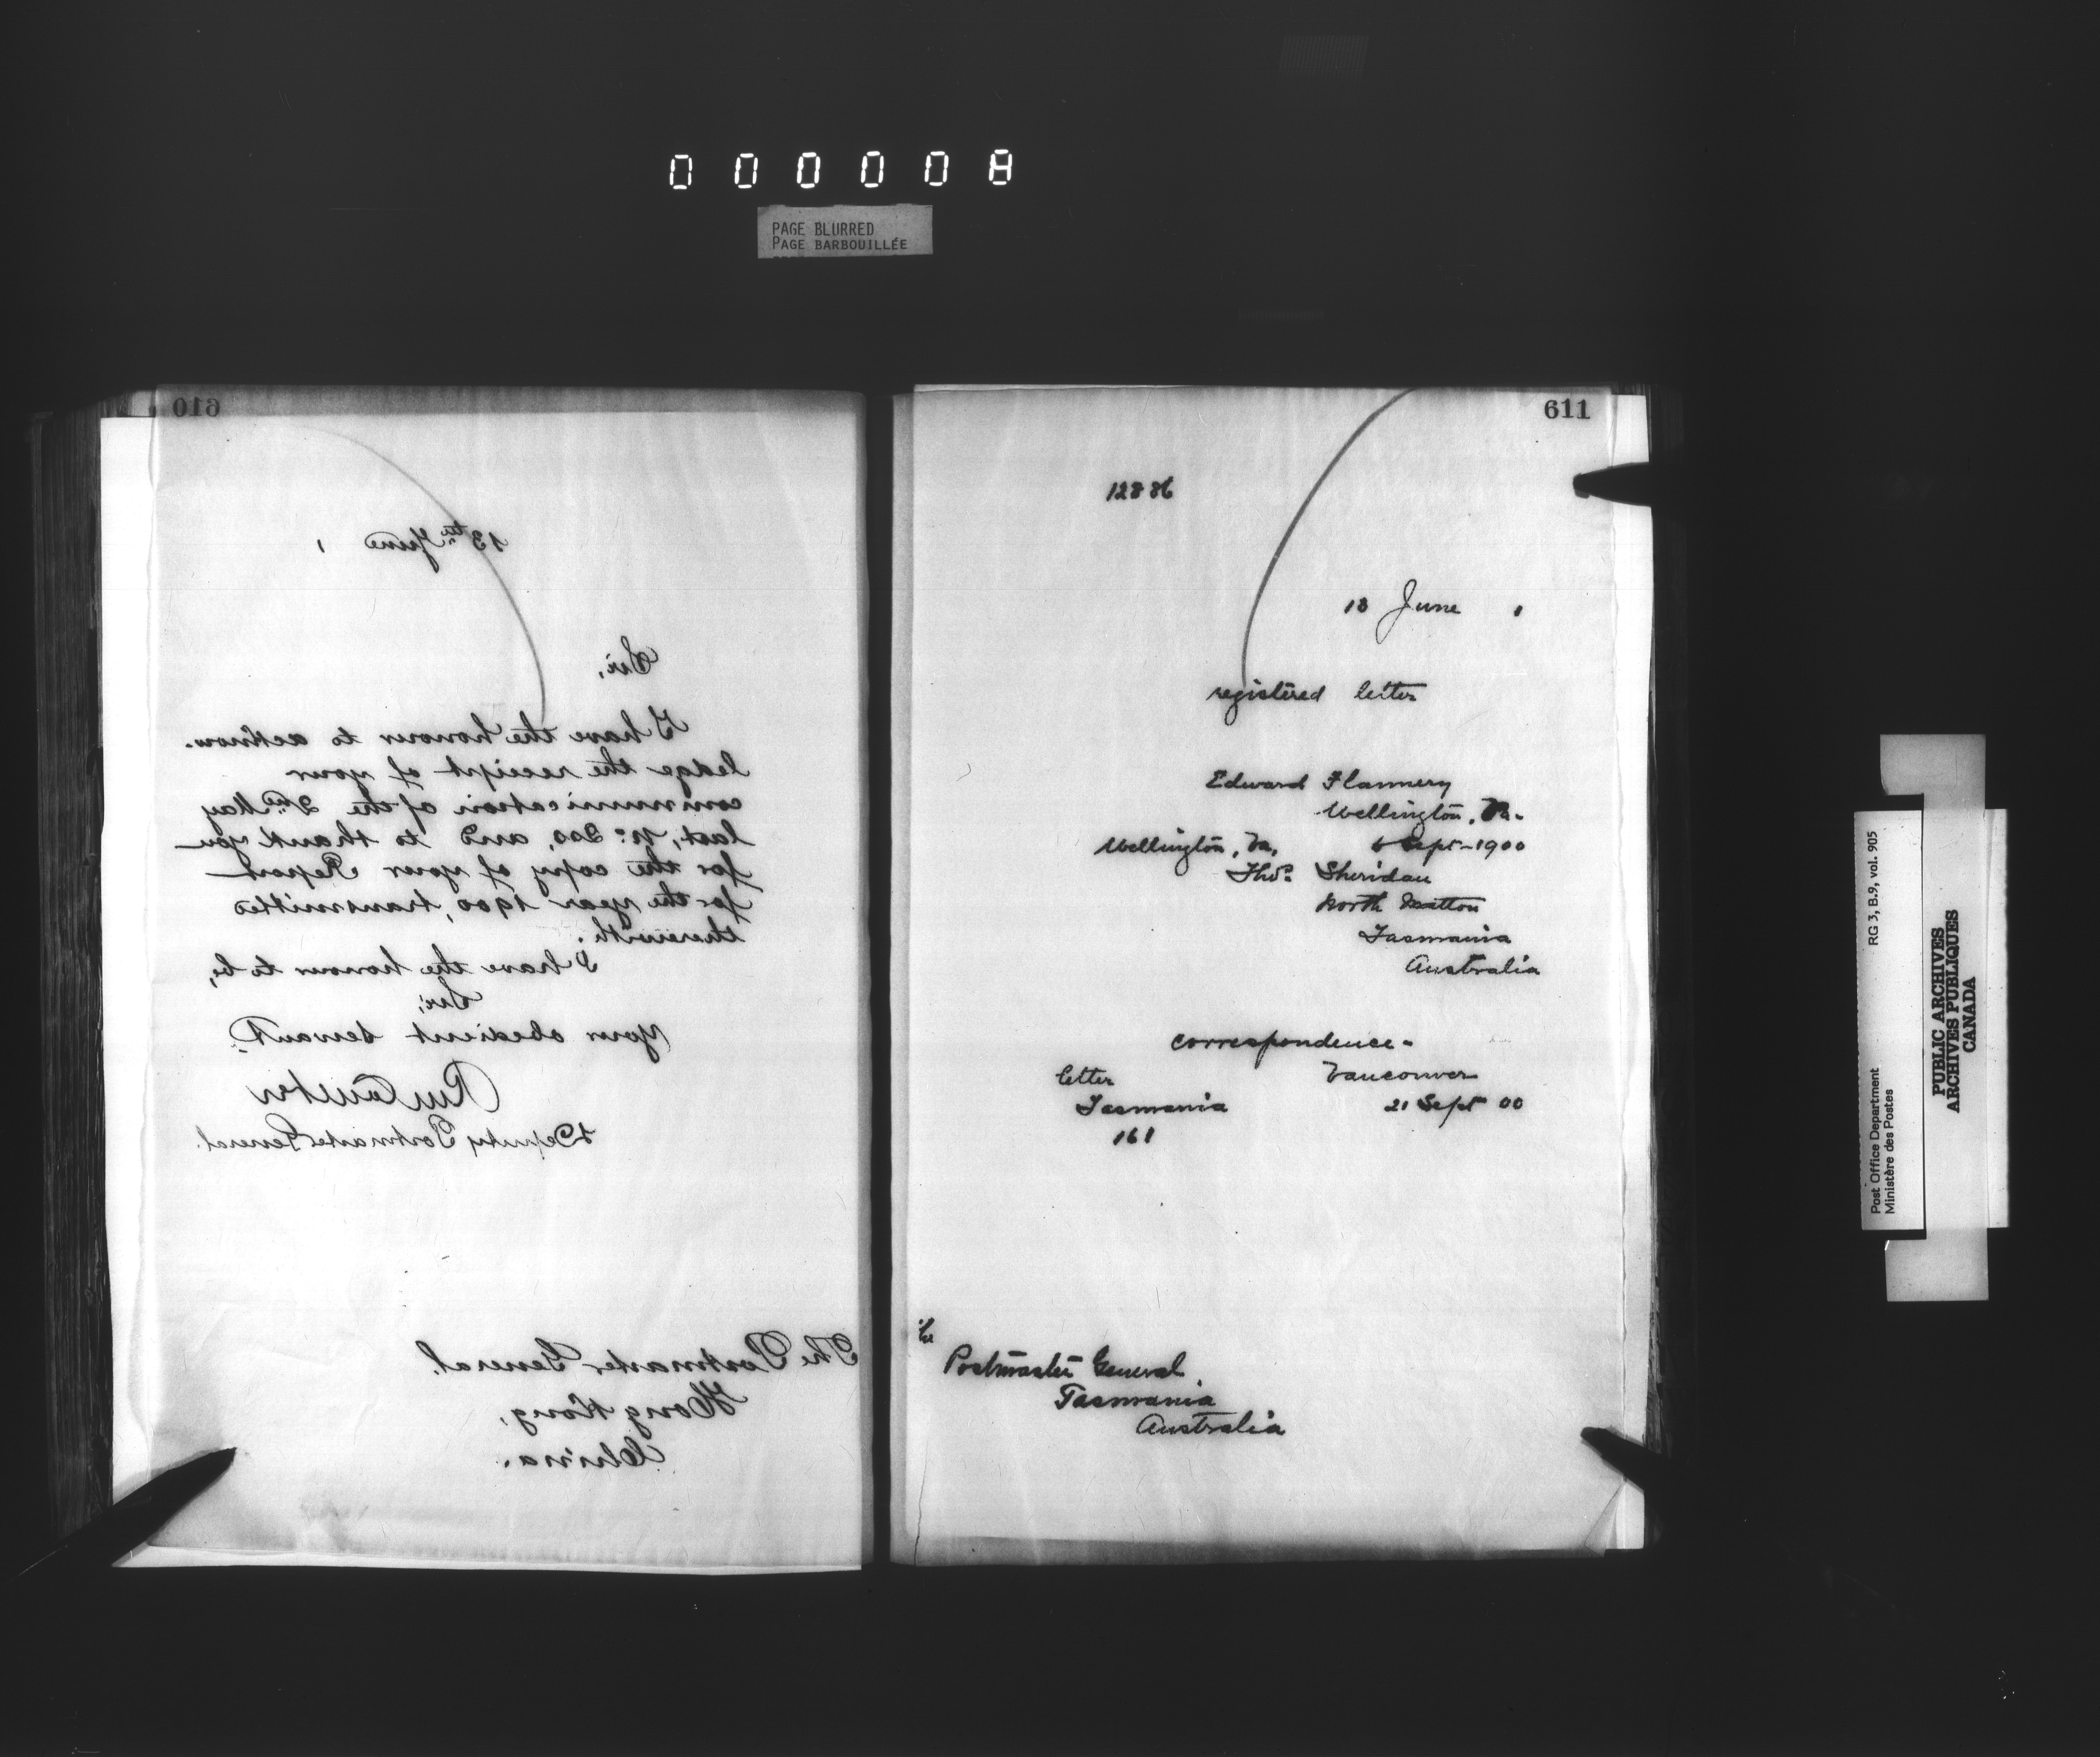 000008
PAGE BLURRED
PAGE BARBOUILLÉE
610
13th June ,
Sir,
I have the honour to acknow-
ledge the receipt of your
communication of the 2nd May
last, No. 200, and to thank you
for the copy of your Report
for the year 1900, transmitted
therewith.
I have the honour to be,
Sir,
Your obedient servant.
Deputy Postmaster General.
The Postmaster General.
Hong Kong,
China.
611
12886
13 June 1
registered letter
Edward Flannery
Wellington,
Wellington, 6 Sept-1900
Thos. Sheridan
North Motton
Tasmania
Australia
correspondence-
letter Vancouver
Tasmania 21 Sept 00
161
The
Postmaster General
Tasmania
Australia
Post Office Department RG 3, B.9, vol. 905
Ministère des Postes
PUBLIC ARCHIVES
ARCHIVES PUBLIQUES
CANADA